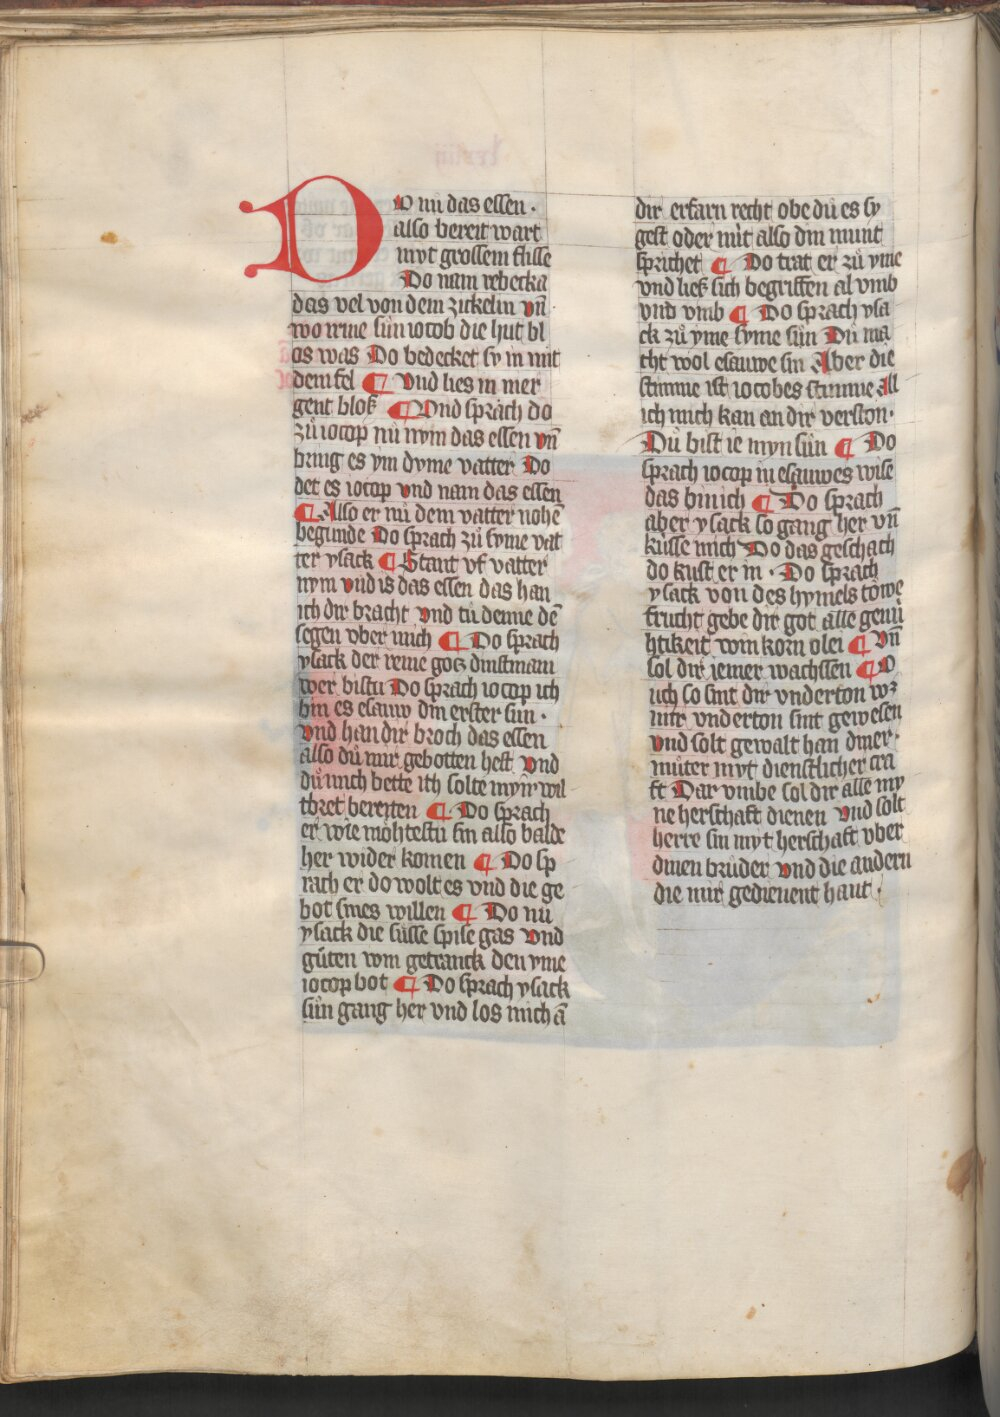 DO nu das essen ·
also bereit wart
myt grossem flisse
Do nam rebecka
das vel von dem zickelin vn̄
wo irme sůn iocob die hut bl
os was Do bedecket sy in mit
dem fel ¶ Vnd lies in mer
gent blos ¶ Vnd sprach do
zů iocop nů nym das essen vn̄
bring es ym dyme vatter Do
det es iocop vnd nam das essen
¶ Also er nů dem vatter nohē
begunde Do sprach zů syme vat
ter ysack ¶ Stant vf vatter
nym vnd is das essen das han
ich dir bracht Vnd tů denne dē
segen vber mich ¶ Do sprach
ysack der reine gotz dinstman
wer bistu Do sprach iocop ich
bin es esauw din erster sun ·
Vnd han dir broch das essen
also dů mir gebotten hest Vnd
dů mich bette ich solte myn wil
tbret bereiten ¶ Do sprach
er wie möhtestu sin also balde
her wider komen ¶ Do sp
rach er do wolt es vnd die ge
bot sines willen ¶ Do nů
ysack die sůsse spise gas Vnd
gůten vom getranck den yme
iocop bot ¶ Do sprach ysack
sůn gang her vnd los mich ā
dir erfarn recht obe dů es sy
gest oder nüt also din munt
sprichet ¶ Do trat er zů yme
vnd lies sich begriffen al vmb
vnd vmb ¶ Do sprach ysa
ck zů yme syme sůn Dů ma
cht wol esauwe sin Aber die
stimme ist iocobes stimme All
ich mich kan an dir verston ·
Dů bist ie myn sůn ¶ Do
sprach iocop in esauwes wise
das bin ich ¶ Do sprach
aber ysack so gang her vn̄
kůsse mich Do das geschach
do kust er in · Do sprach
ysack von des hymels towe
frucht gebe dir got alle genů
htikeit vom korn olei ¶ Vn̄
sol dir iemer wachssen ¶ O
uch so sint dir vnderton wz
mir vnderton sint gewesen
Vnd solt gewalt han diner
můter myt dienstlicher cra
ft Dar vmbe sol dir alle my
ne herschaft dienen Vnd solt
herre sin myt herschaft vber
dinen brůder Vnd die andern
die mir gedienent hant ·